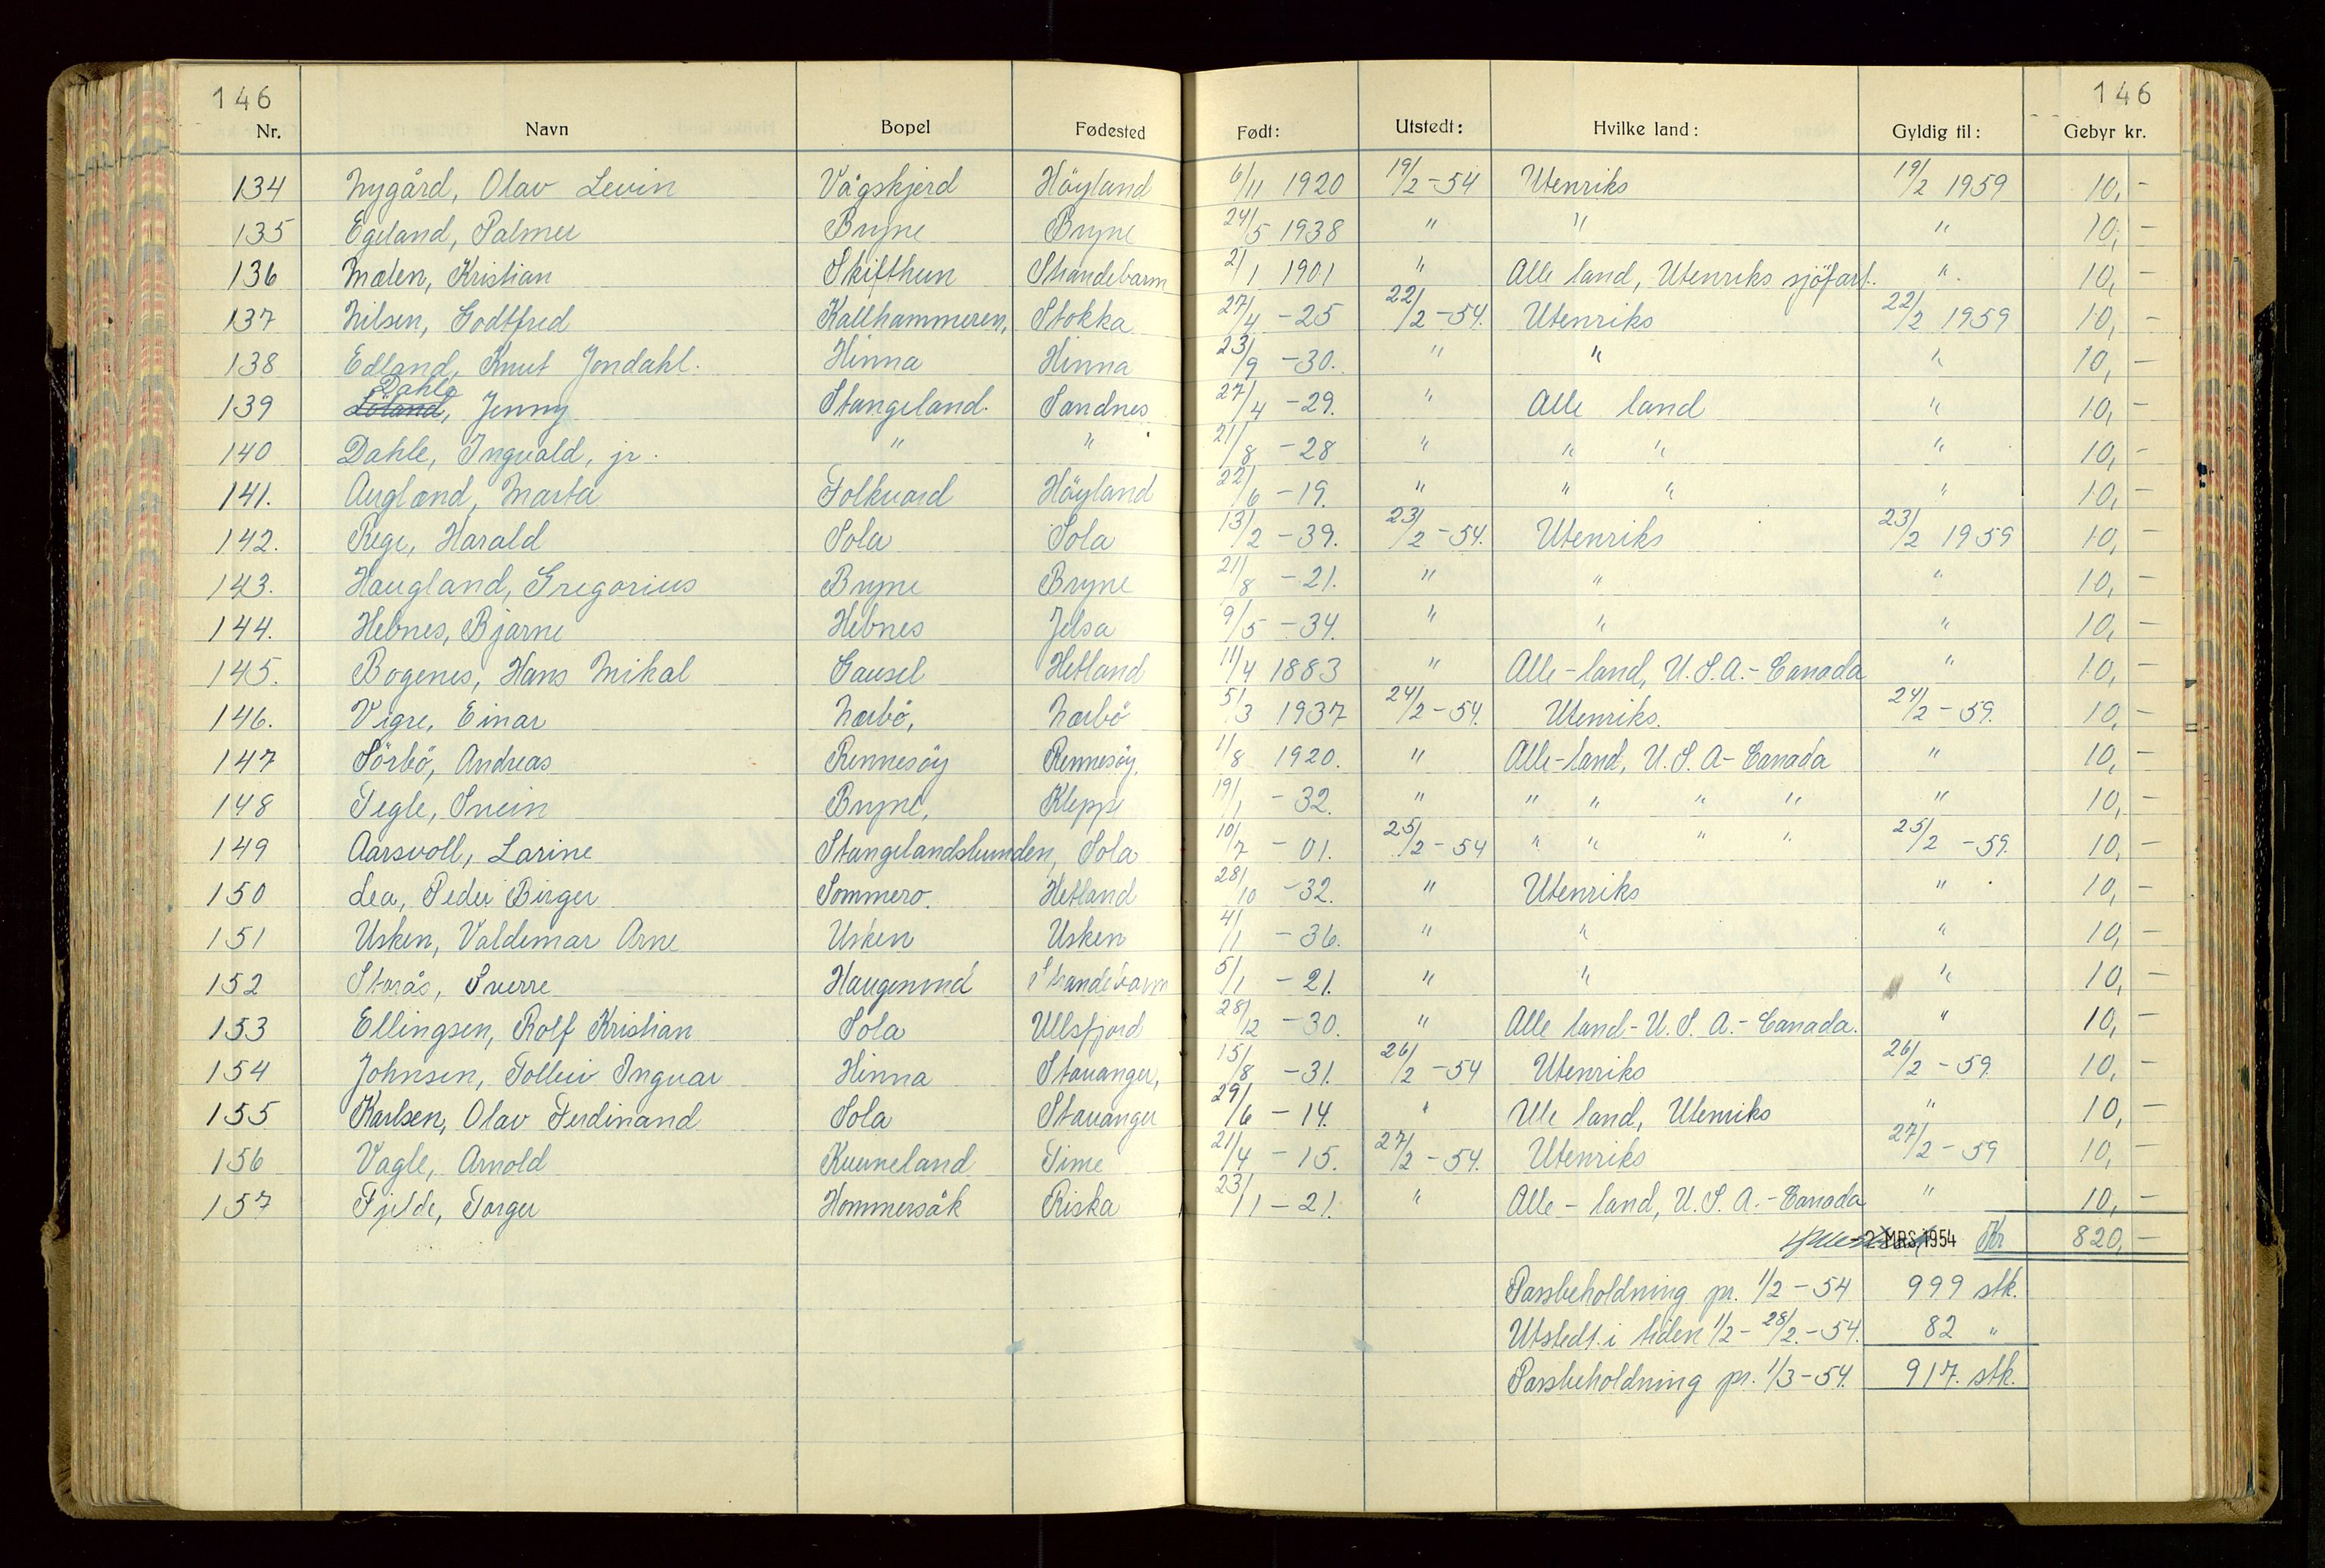 146 146
Nr. Navn Bopel Fødested Født: Utstedt: Hvilke land: Gyldig til: Gebyr kr.
134 Nygård, Olav Levin Vågskjerd Höyland 6/11 1920 19/2-54 Utenriks 19/2 1959 10,-
135 Egeland, Palmer Bryne Bryne 24/5 1938 " " " 10,-
136 Mælen, Kristian Skifthun Strandebarm 2/1 1901 " Alle land, Utenriks sjöfart. " 10,-
137 Nilsen, Godtfred Kallhammeren, Stokka 27/4 -25 22/2-54. Utenriks 22/2 1959 10,-
138 Edland, Knut Jondahl. Hinna Hinna 23/9 -30. " " " 10,-
139 Löland, Dahle Jenny Stangeland. Sandnes 27/4 -29. " Alle land " 10,-
140 Dahle, Ingvald, jr. " " 21/8 -28 " " " " 10,-
141. Augland, Marta Folkvord Höyland 22/6 -19. " " " " 10,-
142. Rege, Harald Sola Sola 13/2 -39. 23/2-54. Utenriks 23/2 1959 10,-
143. Haugland, Gregorius Bryne Bryne 21/8 -21. " " " 10,-
144. Hebnes, Bjarne Hebnes Jelsa 9/5 -34. " " " 10,-
145. Bogenes, Hans Mikal Gausel Hetland 11/4 1883 " Alle-land, U.S.A.-Canada " 10,-
146. Vigre, Einar Nærbö, Nærbö 5/3 1937 24/2-54. Utenriks. 24/2-59. 10,-
147 Sörbö, Andreas Rennesöy Rennesöy. 1/8 1920. " Alle-land, U.S.A-Canada " 10,-
148 Tegle, Svein Bryne, Klepp 19/1 -32. " " " " " " 10,-
149 Aarsvoll, Larine Stangelandshunden, Sola 10/7 -01. 25/2-54 " " " " 25/2-59. 10,-
150 Lea, Peder Birger Sommero. Hetland 28/10 -32. " Utenriks " 10,-
151 Usken, Valdemar Arne Usken Usken 4/1 -36. " " " 10,-
152 Storås, Sverre Haugesund Strandebarm 5/1 -21. " " " 10,-
153 Ellingsen, Rolf Kristian Sola Ullsfjord 28/12 -30. " Alle land-U.S.A.-Canada. " 10,-
154 Johnsen, Tolleiv Ingvar Hinna Stavanger, 15/8 -31. 26/2-54 Utenriks 26/2-59. 10,-
155 Karlsen, Olav Ferdinand Sola Stavanger 29/6 -14. " Alle land, Utenriks " 10,-
156 Vagle, Arnold Kverneland Time 21/4 -15. 27/2-54. Utenriks 27/2-59 10,-
157 Fjelde, Torger Hommersåk Riska 23/11-21. " Alle-land, U.S.A.-Canada " 10,-
-2 MRS. 1954 Kr 820,-
Passbeholdning pr. 1/2-54 999 stk.
Utstedt i tiden 1/2-28/2.-54. 82 "
Passbeholdning pr. 1/3-54. 917. stk.